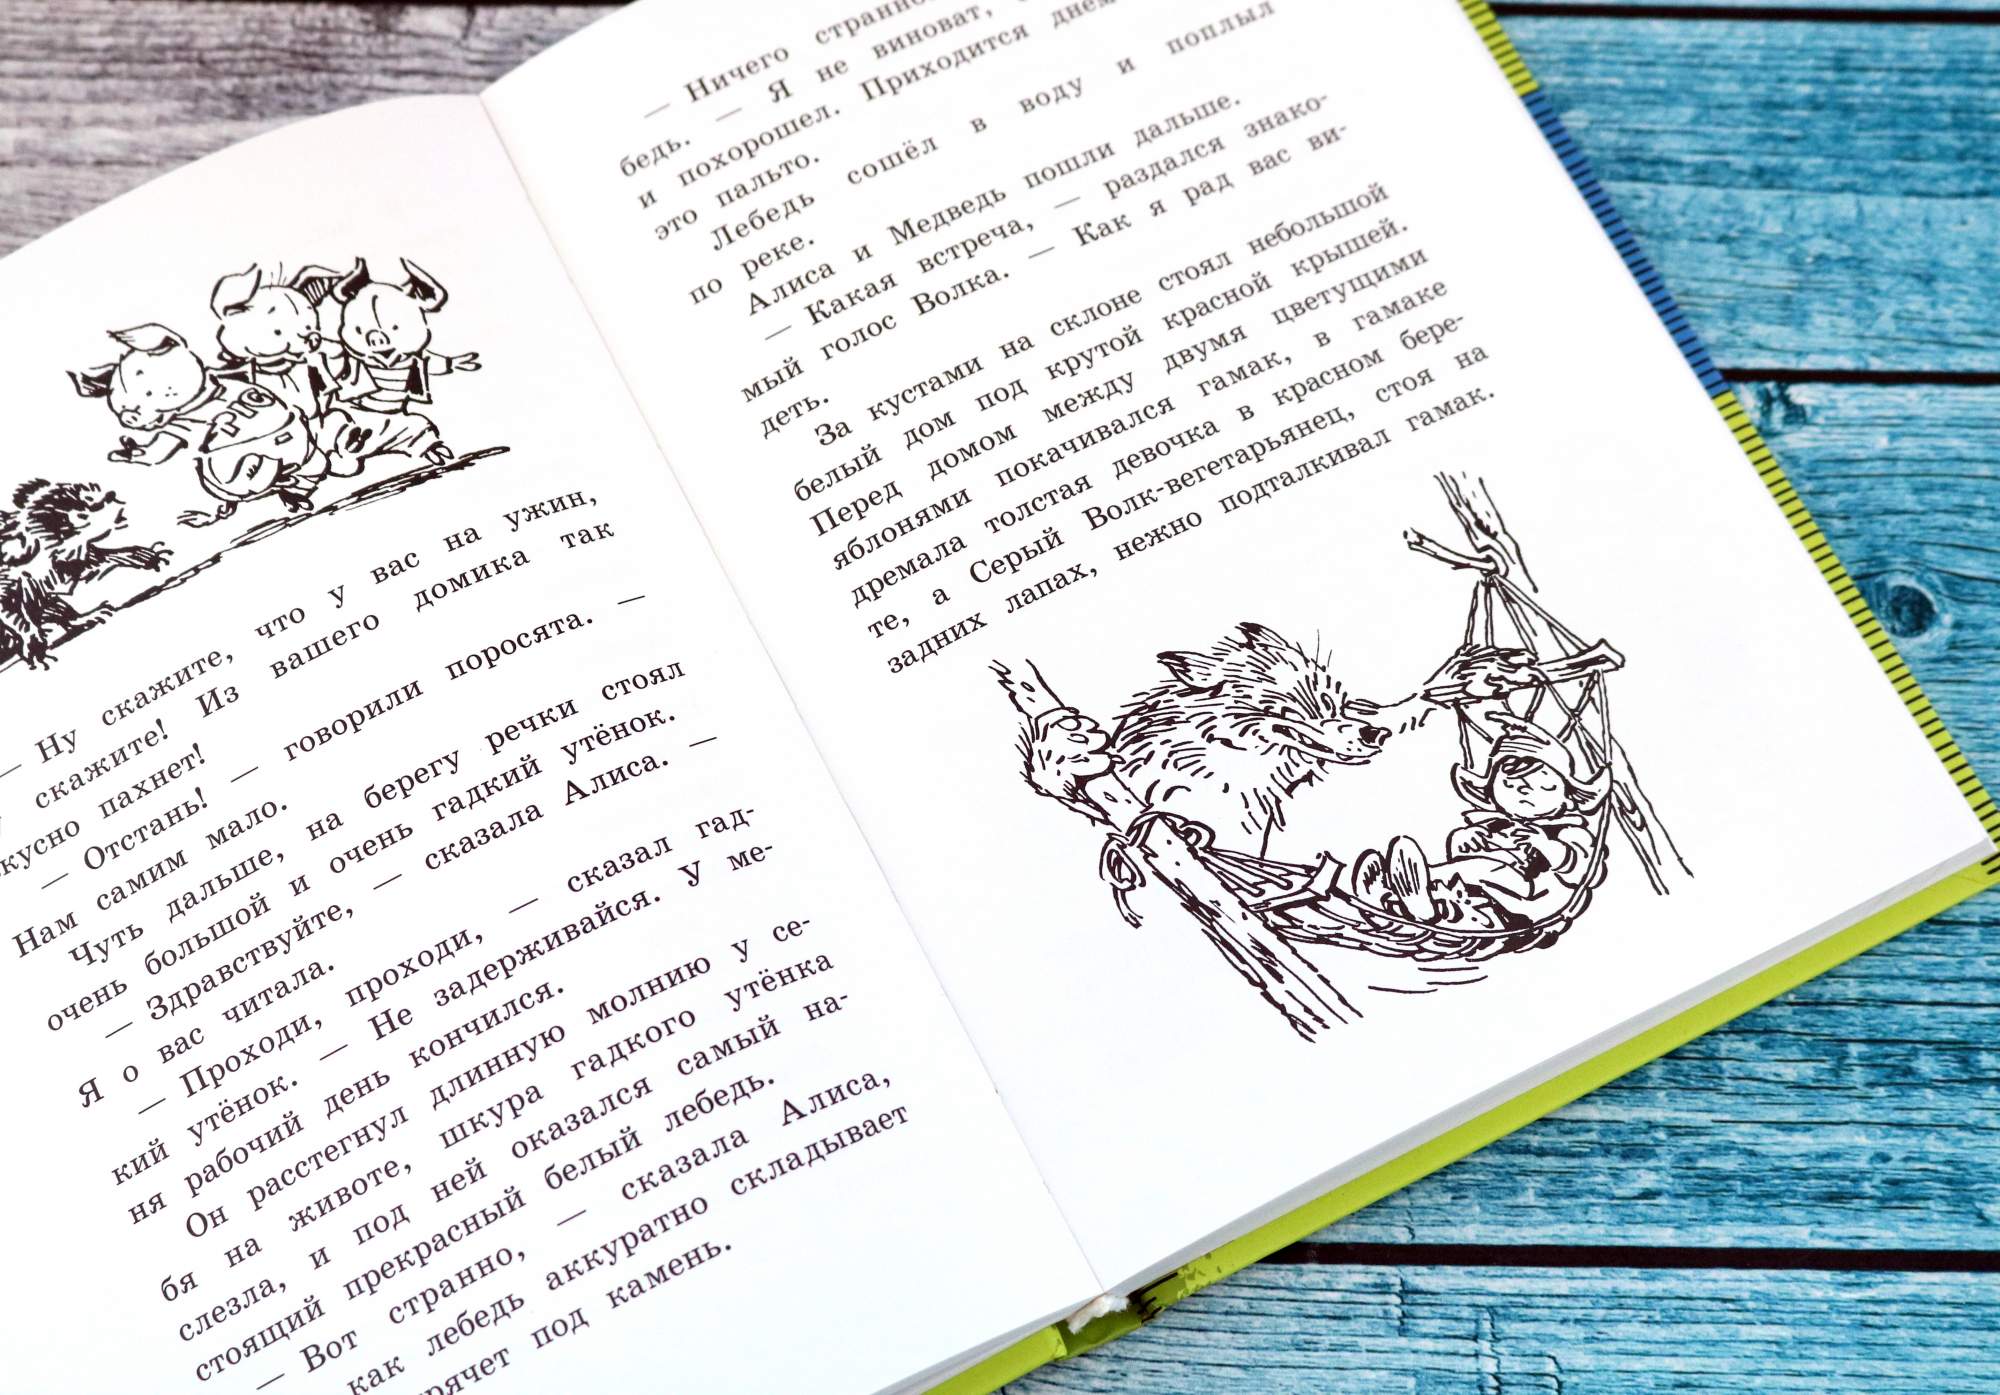 PIG
— Ну скажите, что у вас на ужин,
скажите! Из вашего домика так
вкусно пахнет!
— Отстань! — говорили поросята. —
Нам самим мало.
Чуть дальше, на берегу речки стоял
очень большой и очень гадкий утёнок.
— Здравствуйте, — сказала Алиса. —
Я о вас читала.
— Проходи, проходи, — сказал гад-
кий утёнок. — Не задерживайся. У ме-
ня рабочий день кончился.
Он расстегнул длинную молнию у се-
бя на животе, шкура гадкого утёнка
слезла, и под ней оказался самый на-
стоящий прекрасный белый лебедь.
— Вот странно, — сказала Алиса,
как лебедь аккуратно складывает
прячет под камень.
— Ничего странно
бедь. — Я не виноват,
и похорошел. Приходится днём
это пальто.
Лебедь сошёл в воду и поплыл
по реке.
Алиса и Медведь пошли дальше.
— Какая встреча, — раздался знако-
мый голос Волка. — Как я рад вас ви-
деть.
За кустами на склоне стоял небольшой
белый дом под крутой красной крышей.
Перед домом между двумя цветущими
яблонями покачивался гамак, в гамаке
дремала толстая девочка в красном бере-
те, а Серый Волк-вегетарьянец, стоя на
задних лапах, нежно подталкивал гамак.